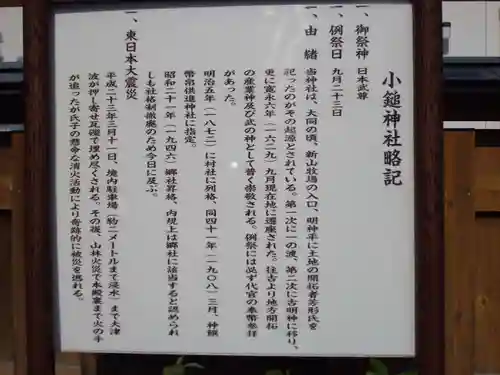 小鎚神社略記
一、御祭神 日本武尊
一、例祭日 九月二十三日
一、由緒 当神社は、大同の頃、新山牧場の入口、明神平に土地の開拓者芳形氏を
祀ったのがその起源とされている。第一次に一の渡、第二次に古明神に移り、
更に寛永六年（一六二九）九月現在地に遷座された。往古より地方開拓
の産業神及び武の神として普く崇敬される。例祭には必ず代官の奉幣参拝
があった。
明治五年（一八七二）に村社に列格、同四十一年（一九〇八）三月、神饌
幣帛供進神社に指定。
昭和二十一年（一九四六）郷社昇格、内規上は郷社に該当すると認められ
しも社格制撤廃のため今日に及ぶ。
一、東日本大震災
平成二十三年三月十一日、境内駐車場（約二メートルまで浸水）まで大津
波が押し寄せ瓦礫で埋め尽くされる。その後、山林火災で本殿裏まで火の手
が迫ったが氏子の懸命な消火活動により奇跡的に被災を逃れる。